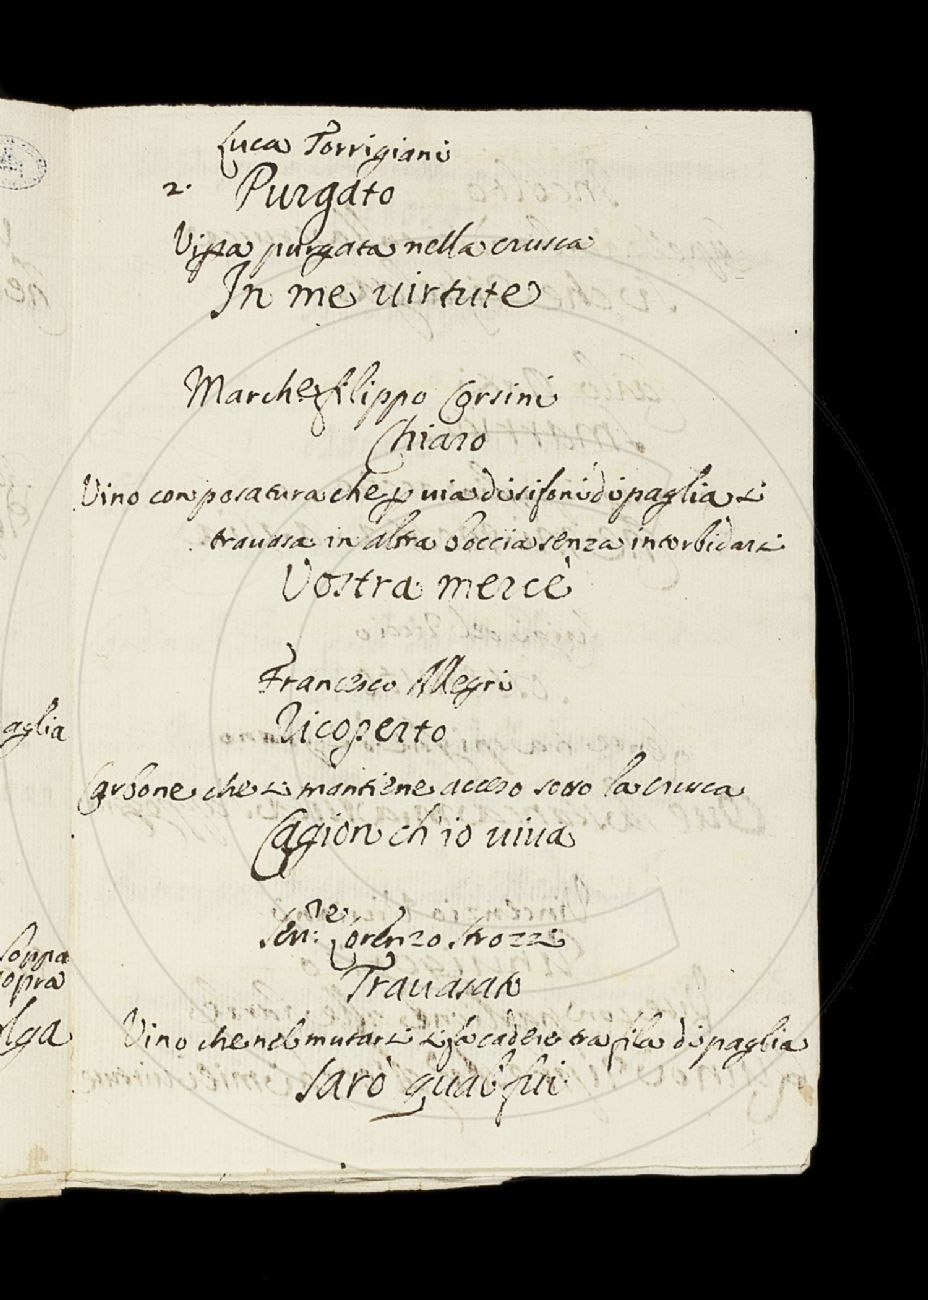 Luca Torrigiani
2. Purgato
Vipa purgata nella crusca
In me uirtute
Marchese filippo Corsini
Chiaro
Vino con posatura che p uia di sifoni di paglia si
trauasa in altra boccia senza intorbidarsi
Vostra mercè
Francesco Allegri
Ricoperto
Carbone che si mantiene acceso sotto la crusca
Cagion ch'io uiua
Sen:re Lorenzo Strozzi
Trauasato
Vino che nel mutarsi si fa cadere tra fila di paglia
Sarò qual fui
aglia
soppa
sopra
lga